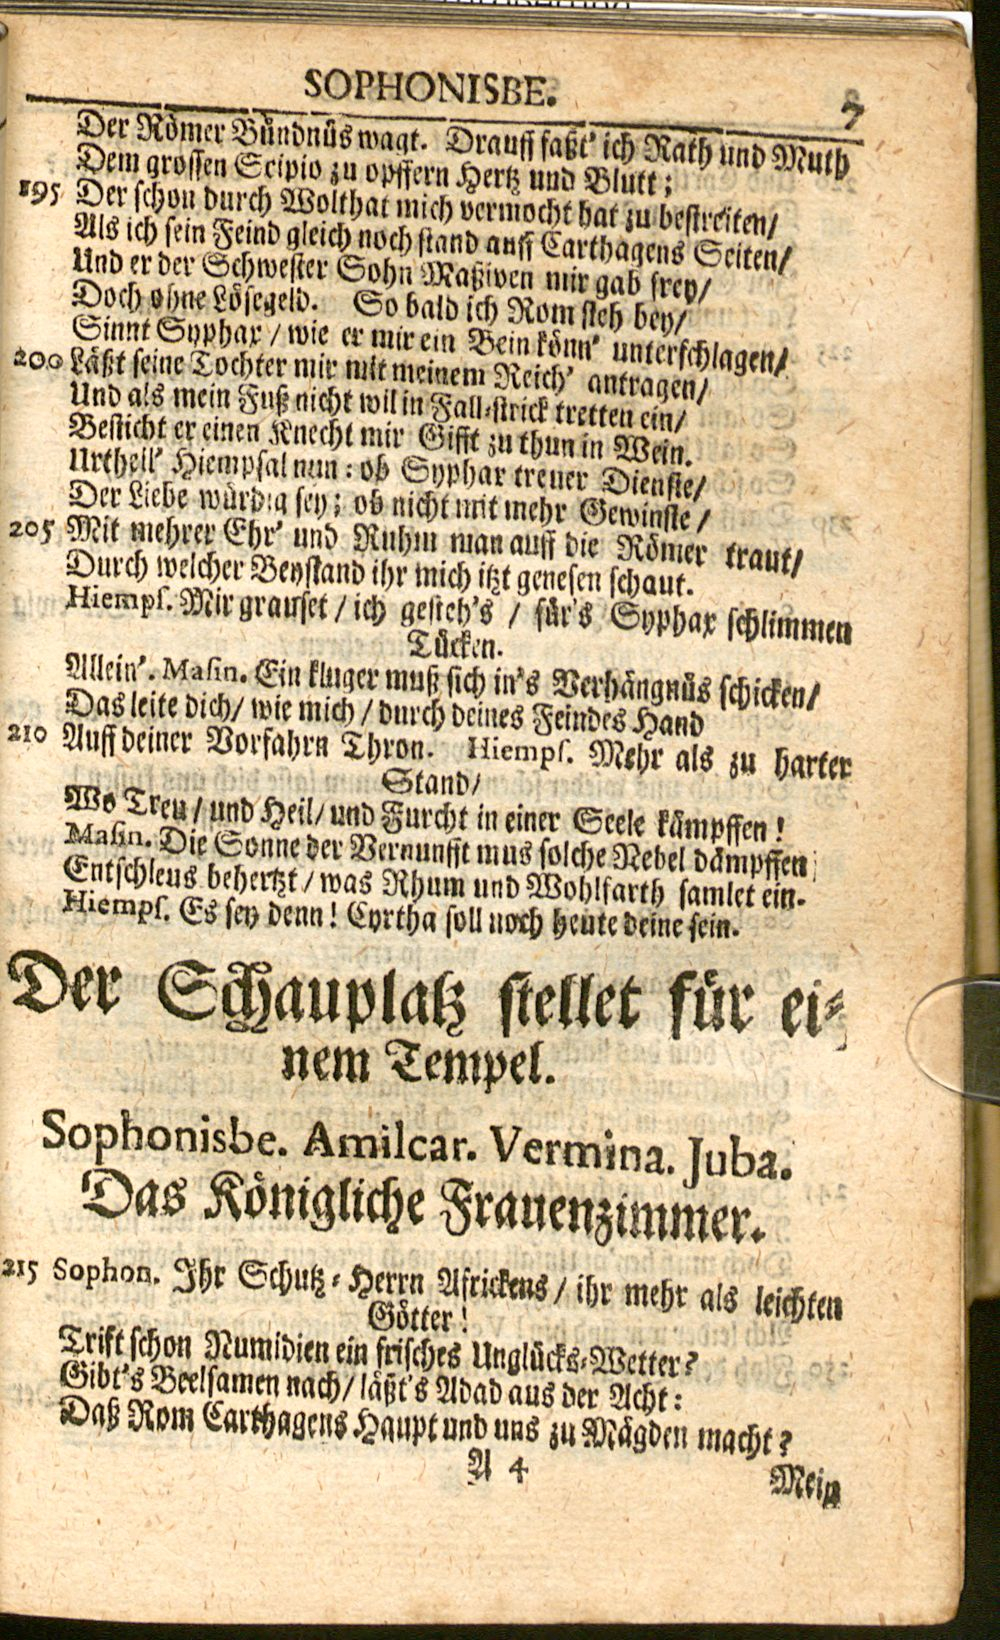 SOPHONISBE.
7
Der Römer Bündnüs wagt. Drauff faßt' ich Rath und Muth
Dem grossen Scipio zu opffern Hertz und Blutt;
195 Der schon durch Wolthat mich vermocht hat zu bestreiten/
Als ich sein Feind gleich noch stand auff Carthagens Seiten/
Und er der Schwester Sohn Maßiven mir gab frey/
Doch ohne Lösegeld. So bald ich Rom steh bey/
Sinnt Syphax / wie er mir ein Bein könn' unterschlagen/
200 Läßt seine Tochter mir mit meinem Reich' antragen/
Und als mein Fuß nicht wil in Fall-strick tretten ein/
Besticht er einen Knecht mir Gifft zu thun in Wein.
Urtheil' Hiempsal nun: ob Syphax treuer Dienste/
Der Liebe würdig sey; ob nicht mit mehr Gewinste /
205 Mit mehrer Ehr' und Ruhm man auff die Römer traut/
Durch welcher Beystand ihr mich itzt genesen schaut.
Hiempſ. Mir grauset / ich gesteh's / für's Syphax schlimmen
Tücken.
Allein'. Maſin. Ein kluger muß sich in's Verhängnüs schicken/
Das leite dich/ wie mich / durch deines Feindes Hand
210 Auff deiner Vorfahrn Thron. Hiempſ. Mehr als zu harter
Stand/
Wo Treu / und Heil/ und Furcht in einer Seele kämpffen!
Maſin. Die Sonne der Vernunfft mus solche Nebel dämpffen
Entschleus behertzt / was Rhum und Wohlfarth samlet ein.
Hiempſ. Es sey denn! Cyrtha soll noch heute deine sein.
Der Schauplatz stellet für ei-
nem Tempel.
Sophonisbe. Amilcar. Vermina. Juba.
Das Königliche Frauenzimmer.
215 Sophon. Ihr Schutz-Herrn Africkens / ihr mehr als leichten
Götter!
Trift schon Numidien ein frisches Unglücks-Wetter?
Gibt's Beelsamen nach/ läßt's Adad aus der Acht:
Daß Rom Carthagens Haupt und uns zu Mägden macht?
A 4
Mein